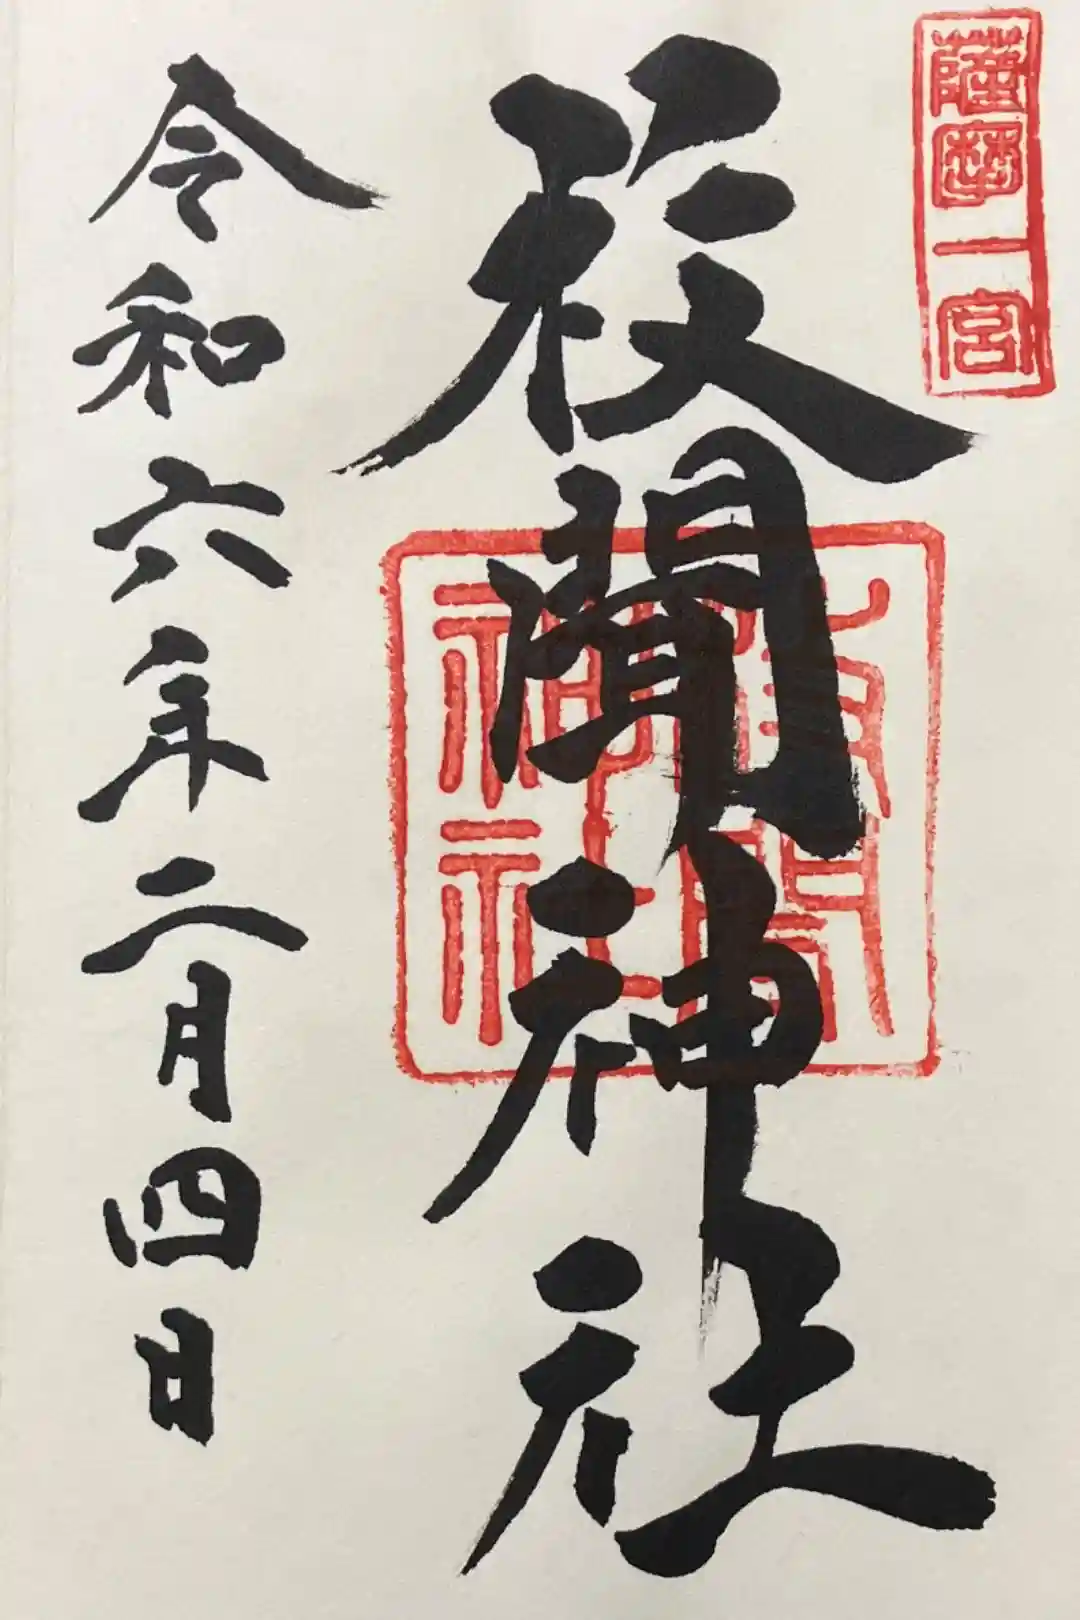 薩摩一宮
枚聞神社
枚聞
神社
令和六年二月四日